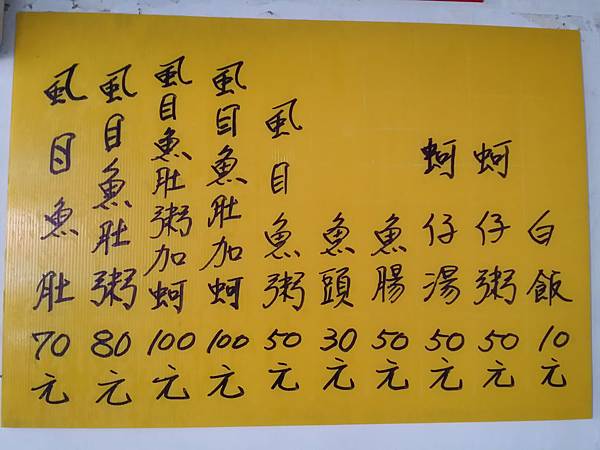 虱目魚肚70元
虱目魚肚粥80元
虱目魚肚粥加蚵100元
虱目魚肚加蚵100元
虱目魚粥50元
魚頭30元
魚腸50元
蚵仔湯50元
蚵仔粥50元
白飯10元